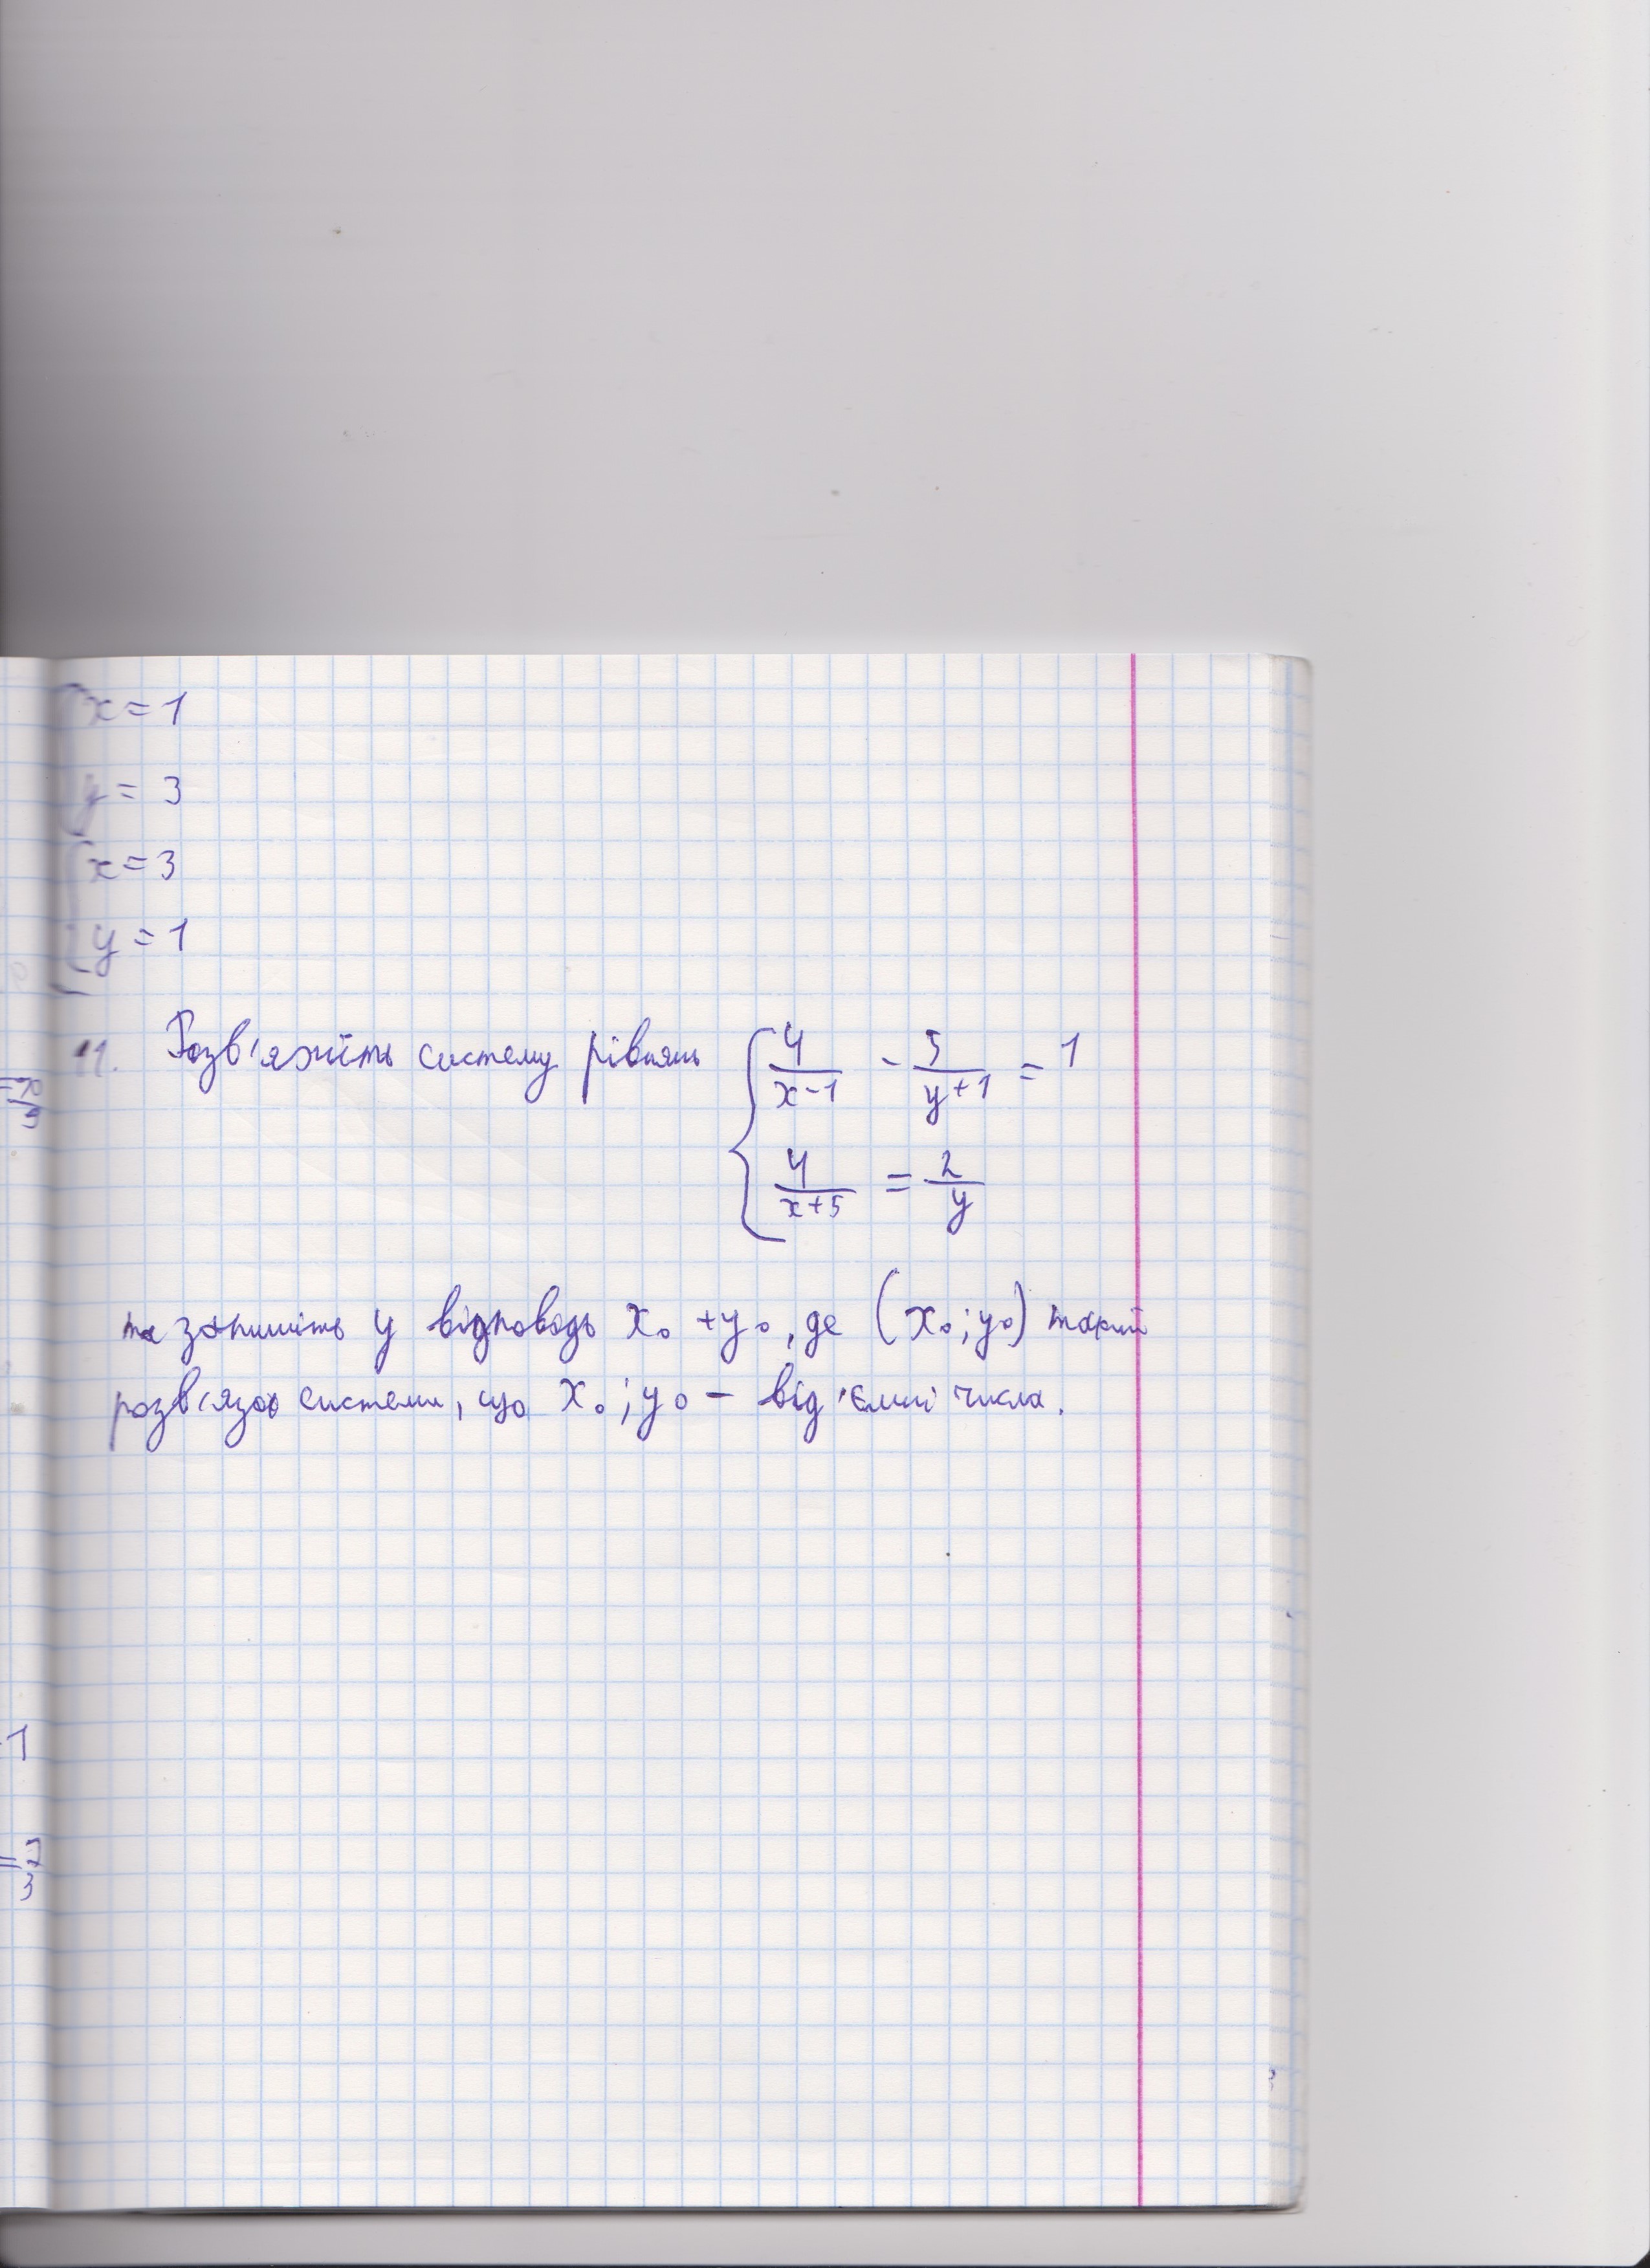 x = 1
y = 3
x = 3
y = 1
11. Розв'яжіть систему рівнянь { 4/(x-1) - 5/(y+1) = 1
4/(x+5) = 2/y
та запишіть у відповідь x₀ + y₀, де (x₀; y₀) такий
розв'язок системи, що x₀; y₀ – від'ємні числа.